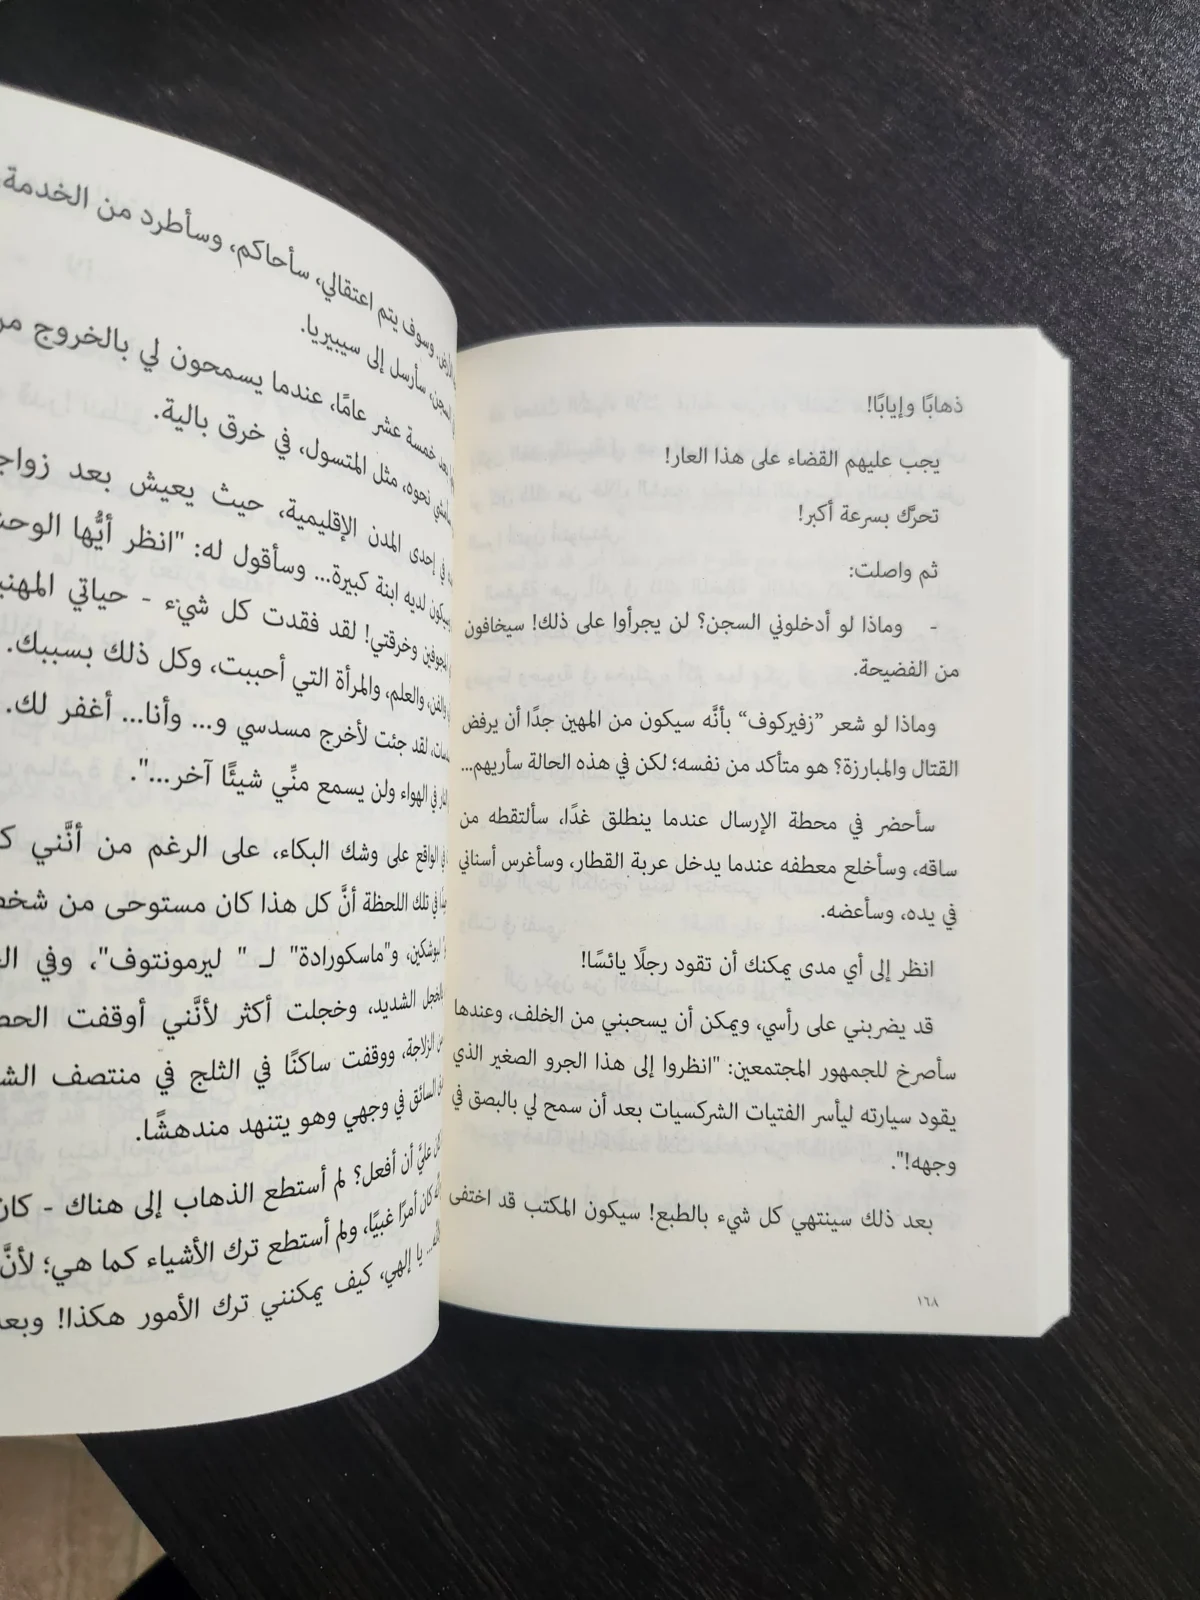 ذهابًا وإيابًا!
يجب عليهم القضاء على هذا العار!
تحرَّك بسرعة أكبر!
ثم واصلت:
- وماذا لو أدخلوني السجن؟ لن يجرأوا على ذلك! سيخافون
من الفضيحة.
وماذا لو شعر ”زفيركوف“ بأنَّه سيكون من المهين جدًا أن يرفض
القتال والمبارزة؟ هو متأكد من نفسه؛ لكن في هذه الحالة سأريهم...
سأحضر في محطة الإرسال عندما ينطلق غدًا، سألتقطه من
ساقه، وسأخلع معطفه عندما يدخل عربة القطار، وسأغرس أسناني
في يده، وسأعضه.
انظر إلى أي مدى يمكنك أن تقود رجلًا يائسًا!
قد يضربني على رأسي، ويمكن أن يسحبني من الخلف، وعندها
سأصرخ للجمهور المجتمعين: "انظروا إلى هذا الجرو الصغير الذي
يقود سيارته ليأسر الفتيات الشركسيات بعد أن سمح لي بالبصق في
وجهه!".
بعد ذلك سينتهي كل شيء بالطبع! سيكون المكتب قد اختفى
١٦٨
وسوف يتم اعتقالي، سأحاكم، وسأطرد من الخدمة،
السجن، سأرسل إلى سيبيريا.
بعد خمسة عشر عامًا، عندما يسمحون لي بالخروج
نحوه، مثل المتسول، في خرق بالية.
في إحدى المدن الإقليمية، حيث يعيش بعد
وسيكون لديه ابنة كبيرة... وسأقول له: "انظر أيُّها
وخرقتي! لقد فقدت كل شيء - حياتي
والفن، والعلم، والمرأة التي أحببت، وكل ذلك بسببك.
لقد جئت لأخرج مسدسي و... وأنا... أغفر لك.
في الهواء ولن يسمع منِّي شيئًا آخر...".
في الواقع على وشك البكاء، على الرغم من أنَّني
في تلك اللحظة أنَّ كل هذا كان مستوحى من
لبوشكين، و"ماسكورادة" لـ " ليرمونتوف"، وفي
بالخجل الشديد، وخجلت أكثر لأنَّني أوقفت
من الزلاجة، ووقفت ساكنًا في الثلج في منتصف
السائق في وجهي وهو يتنهد مندهشًا.
عليَّ أن أفعل؟ لم أستطع الذهاب إلى هناك -
كان أمرًا غبيًا، ولم أستطع ترك الأشياء كما هي؛ لأنَّ
يا إلهي، كيف يمكنني ترك الأمور هكذا!